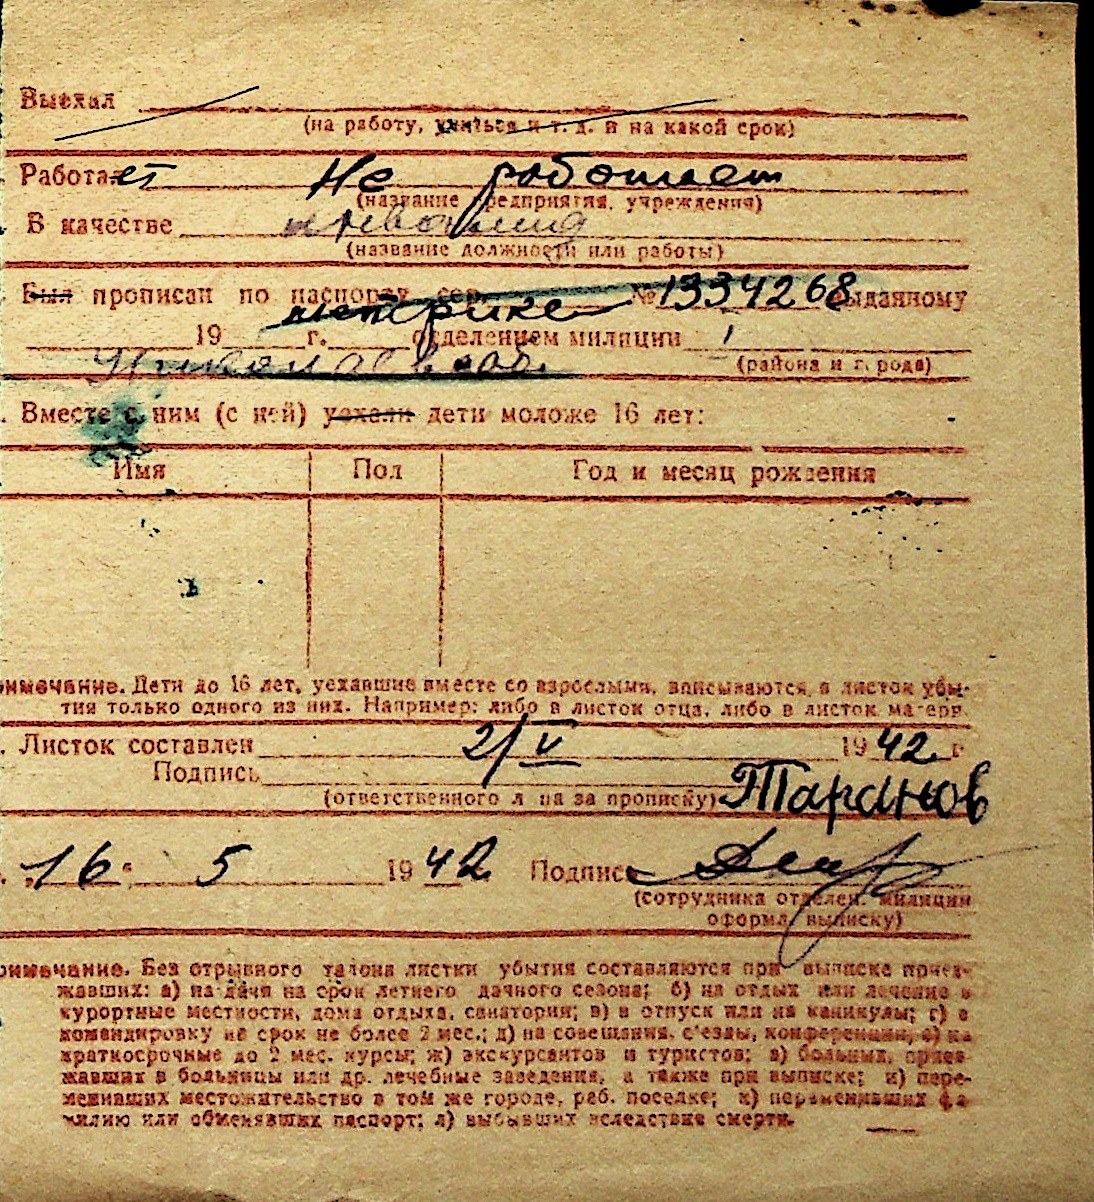 Выехал
(на работу, учиться и т. д. и на какой срок)
Работает Не работает
(название предприятия, учреждения)
В качестве
(название должности или работы)
Был прописан по паспорту сер. метрике № 1334268 выданному
19 г. отделением милиции 1
(района и города)
Вместе с ним (с ней) уехали дети моложе 16 лет:
Имя Пол Год и месяц рождения
имечание. Дети до 16 лет, уехавшие вместе со взрослыми, вписываются в листок убы-
тия только одного из них. Например: либо в листок отца, либо в листок матери.
Листок составлен 2/V 1942 г.
Подпись Таранов
(ответственного лица за прописку)
"16" 5 1942 Подпись
(сотрудника отделен. милиции
оформл. выписку)
имечание. Без отрывного талона листки убытия составляются при выписке приез-
жавших: а) на дачи на срок летнего дачного сезона; б) на отдых или лечение в
курортные местности, дома отдыха, санатории; в) в отпуск или на каникулы; г) в
командировку на срок не более 2 мес.; д) на совещания, с'езды, конференции, е) на
краткосрочные до 2 мес. курсы; ж) экскурсантов и туристов; з) больных, приез-
жавших в больницы или др. лечебные заведения, а также при выписке; и) пере-
менивших местожительство в том же городе, раб. поселке; к) переменивших фа-
милию или обменявших паспорт; л) выбывших вследствие смерти.